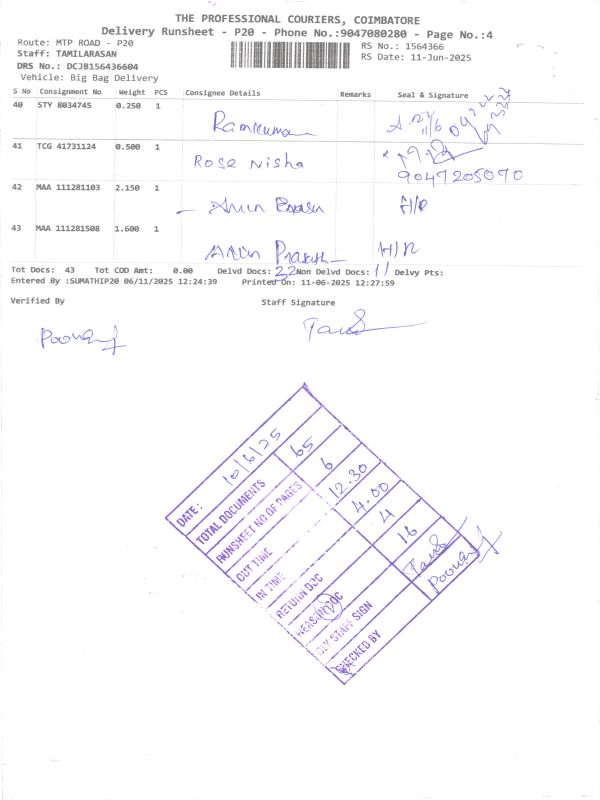 THE PROFESSIONAL COURIERS, COIMBATORE
Delivery Runsheet - P20 - Phone No.:9047080280 - Page No.:4
Route: MTP ROAD - P20
RS No.: 1564366
Staff: TAMILARASAN
RS Date: 11-Jun-2025
DRS No.: DCJB156436604
Vehicle: Big Bag Delivery
S No Consignment No Weight PCS Consignee Details Remarks Seal & Signature
40 STY 8034745 0.250 1
Ramkumar
41 TCG 41731124 0.500 1
Rose Nisha
9047205070
42 MAA 111281103 2.150 1
Arun H/R
43 MAA 111281508 1.600 1
Arun Prakash H/R
Tot Docs: 43 Tot COD Amt: 0.00 Delvd Docs: 32 Non Delvd Docs: 11 Delvy Pts:
Entered By :SUMATHIP20 06/11/2025 12:24:39 Printed On: 11-06-2025 12:27:59
Verified By Staff Signature
DATE: 10/6/25
TOTAL DOCUMENTS 65
RUNSHEET NO OF PAGES 6
OUT TIME 12.30
IN TIME 4.00
RETURN DOC 4
REASON DOC 16
DLY STAFF SIGN
CHECKED BY